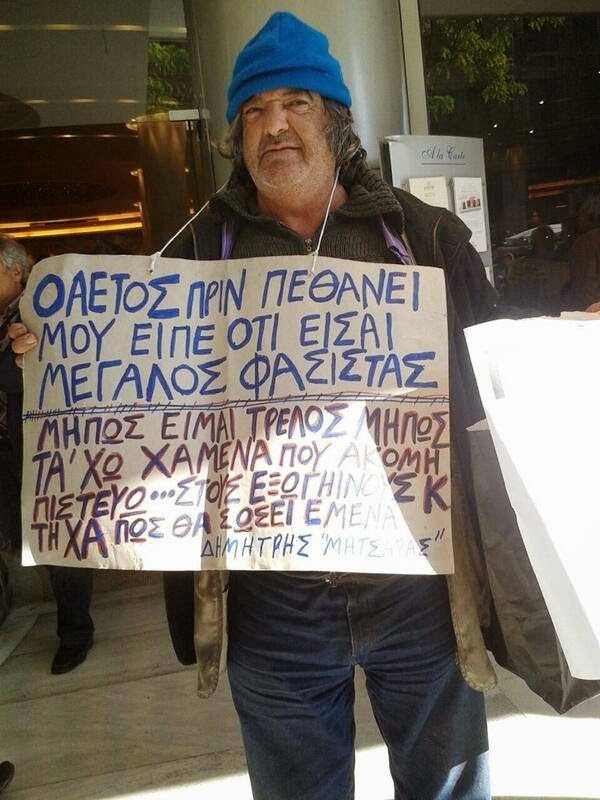 A la Carte
Ο ΑΕΤΟΣ ΠΡΙΝ ΠΕΘΑΝΕΙ
ΜΟΥ ΕΙΠΕ ΟΤΙ ΕΙΣΑΙ
ΜΕΓΑΛΟΣ ΦΑΣΙΣΤΑΣ
ΜΗΠΩΣ ΕΙΜΑΙ ΤΡΕΛΟΣ ΜΗΠΩΣ
ΤΑ' ΧΩ ΧΑΜΕΝΑ ΠΟΥ ΑΚΟΜΗ
ΠΙΣΤΕΥΩ... ΣΤΟΥΣ ΕΞΩΓΗΙΝΟΥΣ Κ
ΤΗΧΑ ΠΩΣ ΘΑ ΣΩΣΕΙ ΕΜΕΝΑ
ΔΗΜΗΤΡΗΣ